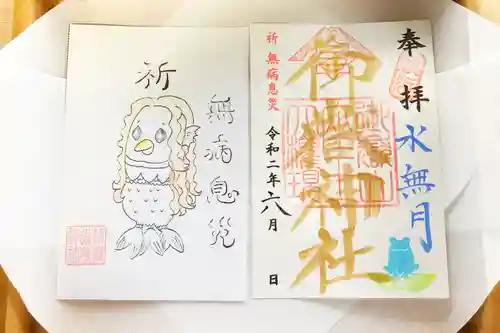 奉拝
水無月
御嶽神社
祈 無病息災
令和二年六月 日
祈
無病息災